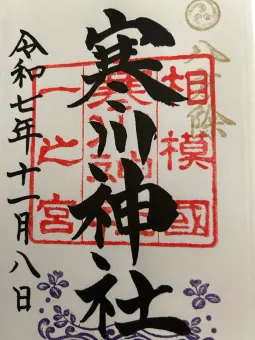 八方除
寒川神社
相模國
寒川神社
一之宮
令和七年十一月八日